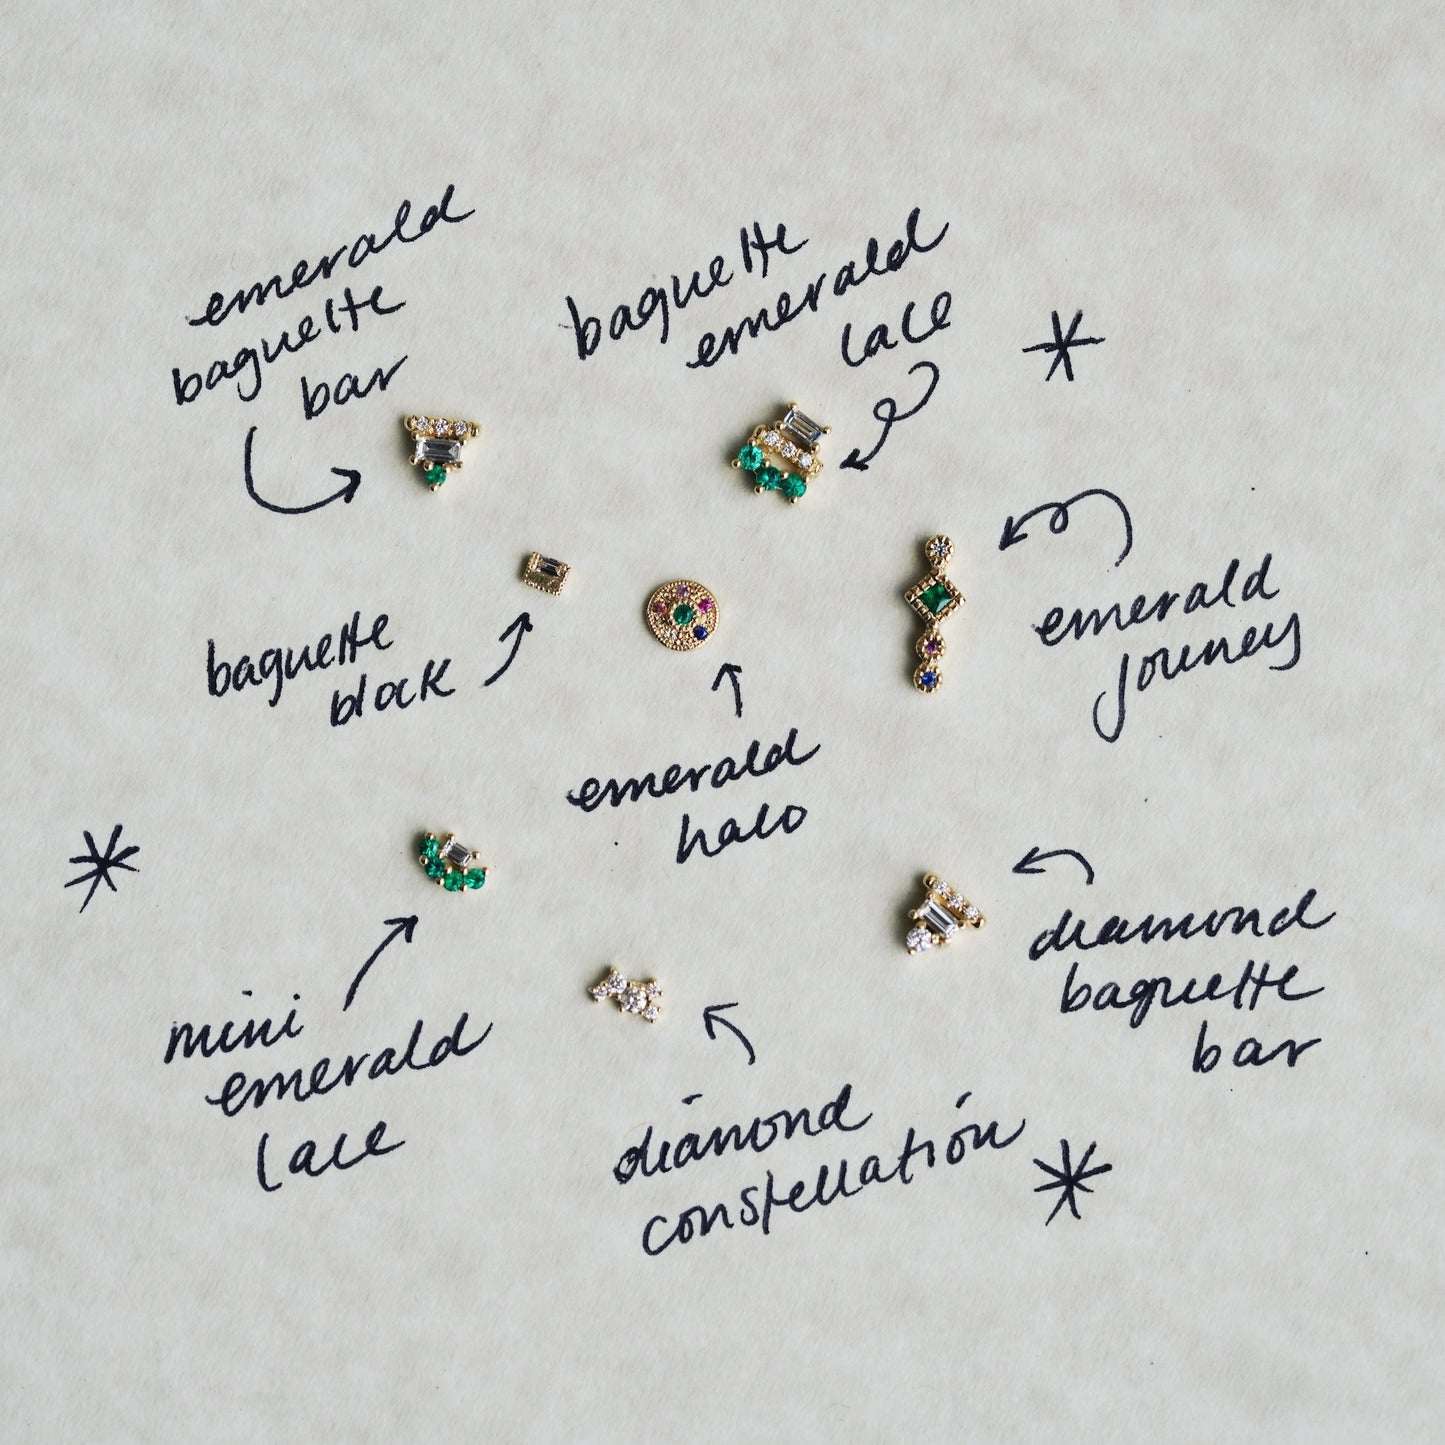 emerald
baguette
bar
baguette
emerald
lace
baguette
block
emerald
journey
emerald
halo
mini
emerald
lace
diamond
baguette
bar
diamond
constellation